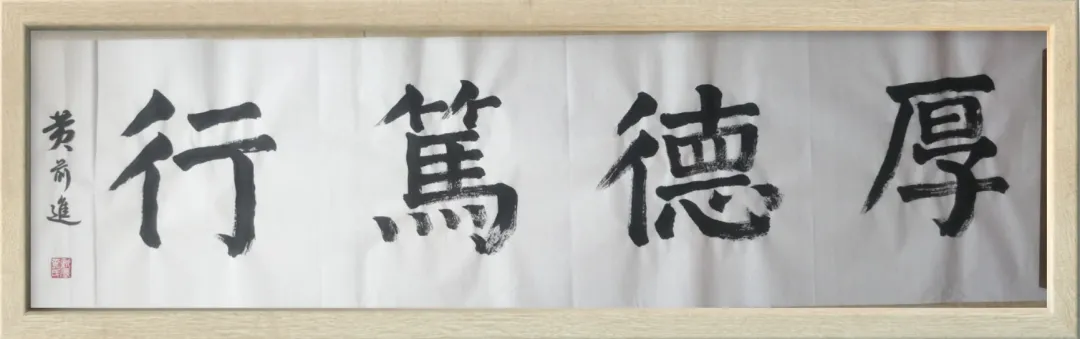 厚德篤行
黄前進